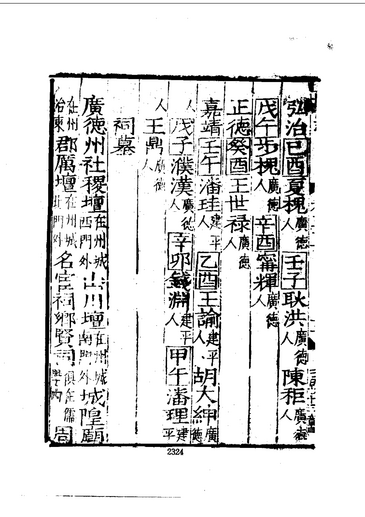 弘治己酉夏槐廣德人 壬子耿洪廣德人 陳秬廣德人
戊午步槐廣德人 辛酉甯輝廣德人
正德癸酉王世禄廣德人
嘉靖壬午潘珪建平人 乙酉王諭建平人 胡大紳廣德人
戊子濮漢廣德人 辛卯錢淵建平人 甲午潘理建平
人 王鼎廣德人
祠墓
廣德州社稷壇在州城西門外 山川壇在州城南門外 城隍廟
在州治東 郡厲壇在州城北門外 名宦祠鄉賢祠俱在儒學内
2324